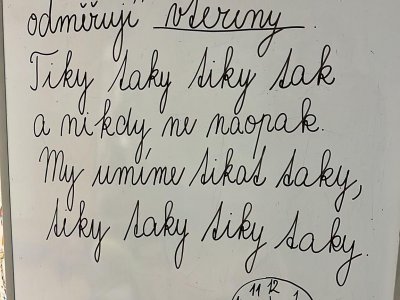 odměřují vteřiny
Tiky taky tiky tak
a nikdy ne naopak.
My umíme tikat taky,
tiky taky tiky taky.
11 12 1